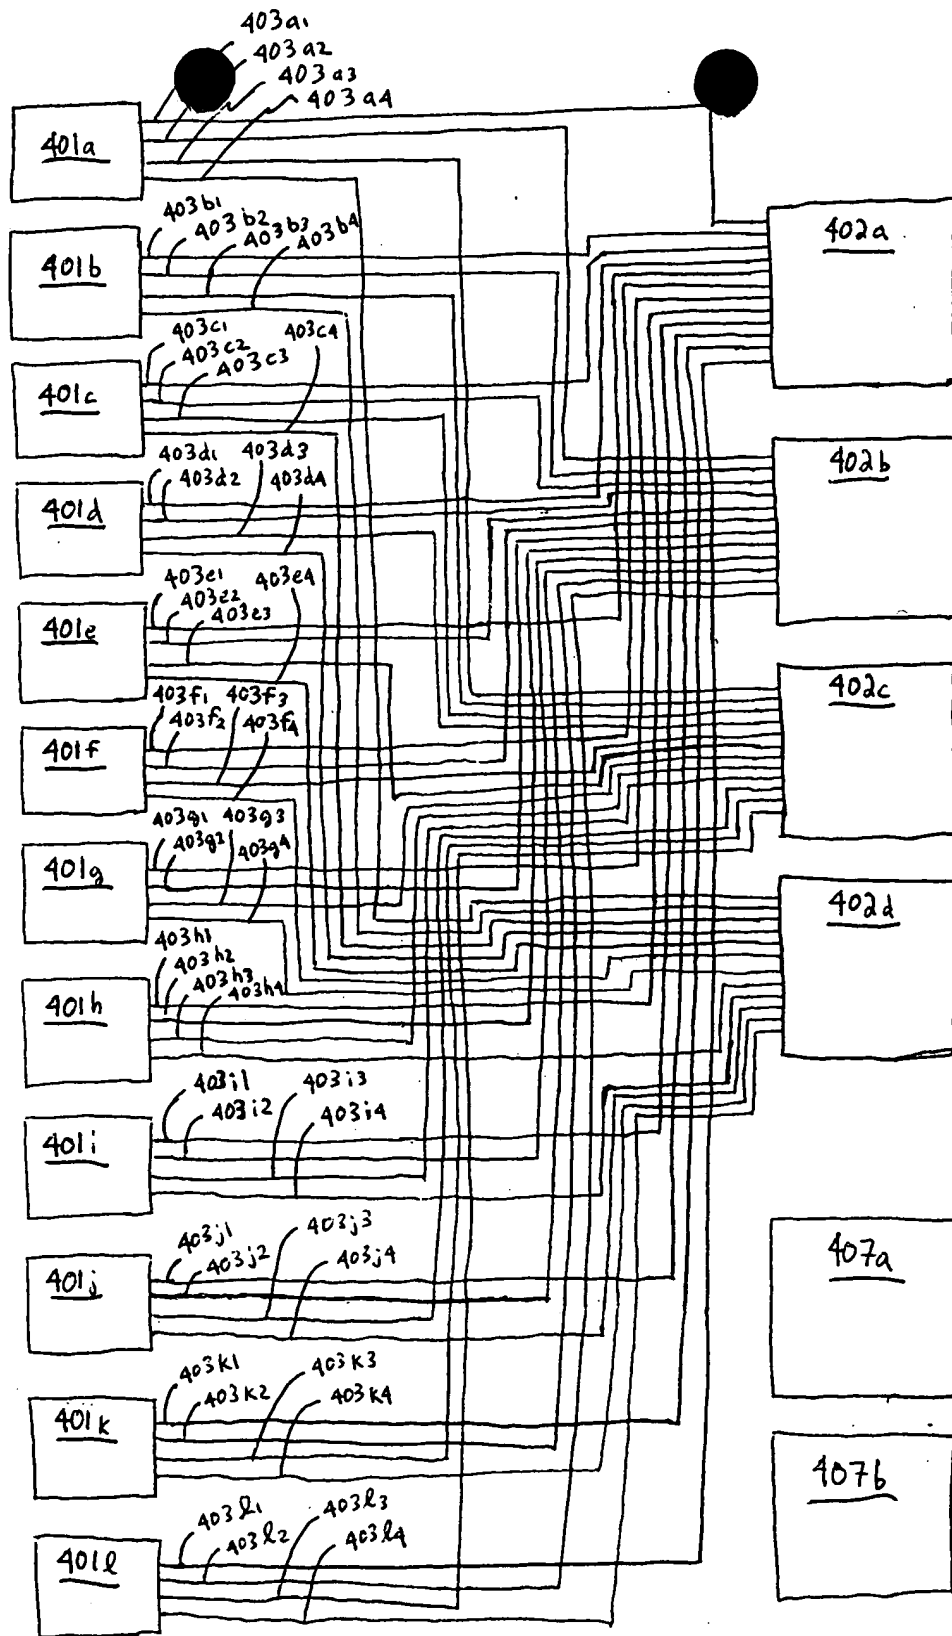 403a1
403a2
403a3
403a4
401a
402a
403b1
403b2
403b3
403b4
401b
403c1
403c2
403c3
403c4
401c
403d1
403d2
403d3
403d4
401d
402b
403e1
403e2
403e3
403e4
401e
403f1
403f2
403f3
403f4
401f
402c
403g1
403g2
403g3
403g4
401g
402d
403h1
403h2
403h3
403h4
401h
403i1
403i2
403i3
403i4
401i
403j1
403j2
403j3
403j4
401j
407a
403k1
403k2
403k3
403k4
401k
407b
403l1
403l2
403l3
403l4
401l